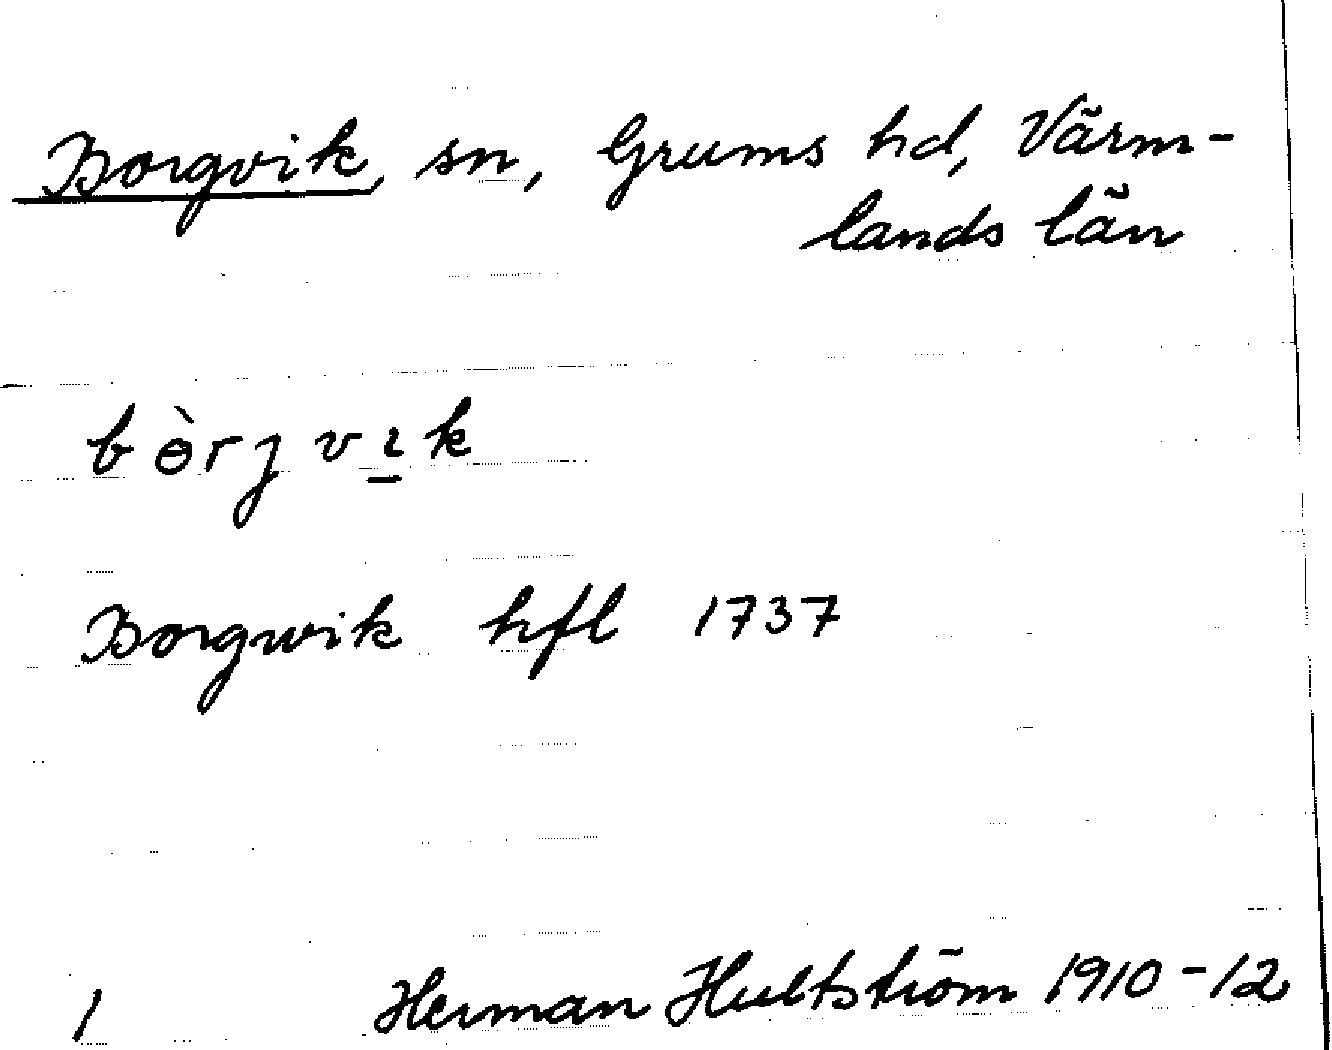 Borgvik, sn, Grums hd, Värm-
lands län
bɵ̀rjvı̲k
Borgwik hfl 1737
1 Herman Hultström 1910-12